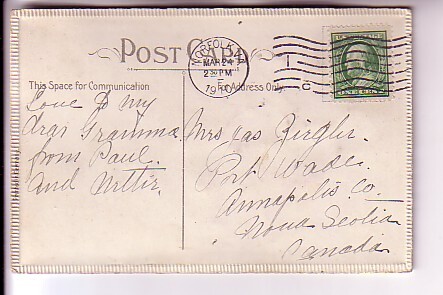 POST CARD
NORFOLK, VA.
MAR 24
2 30 PM
1910
U.S. POSTAGE
ONE CENT
This Space for Communication
For Address Only.
Love to my
dear Gramma
from Paul.
And Nettie.
Mrs Jas Ziegler.
Port Wade.
Annapolis Co
Nova Scotia
Canada